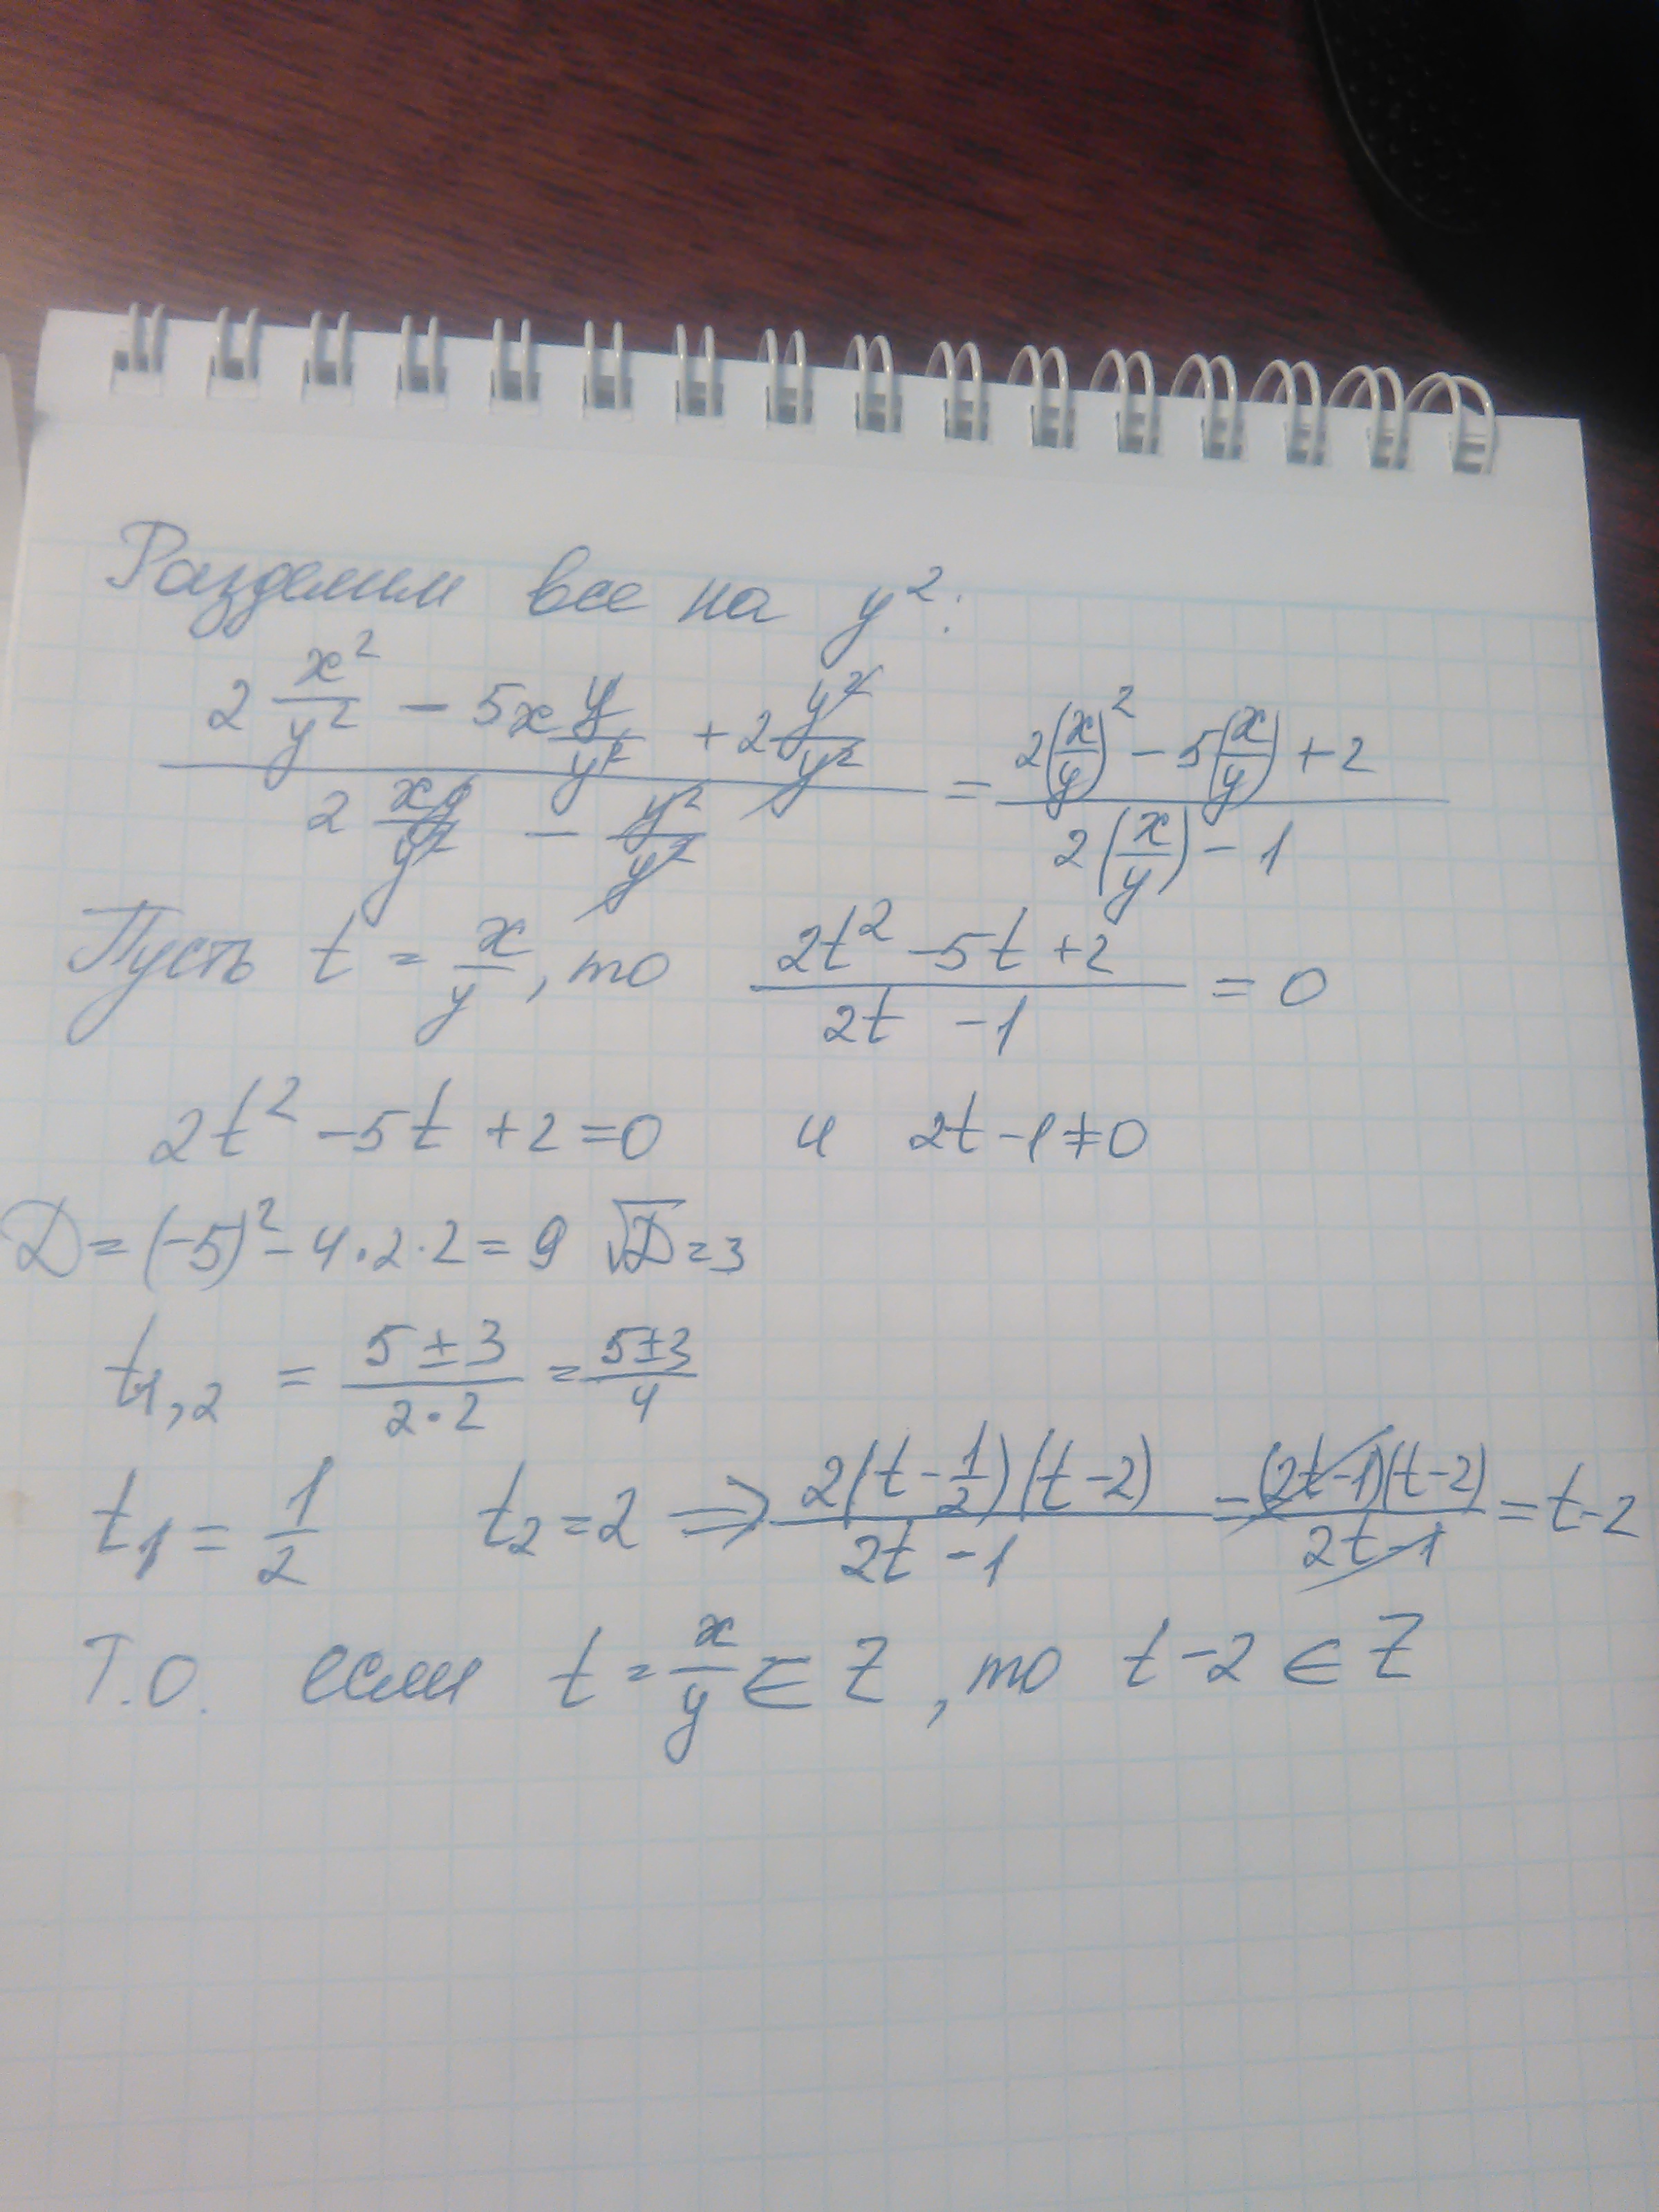 Разделим все на y²:
(2 x²/y² − 5x y/y² + 2 y²/y²) / (2 xy/y² − y²/y²) = (2(x/y)² − 5(x/y) + 2) / (2(x/y) − 1)
Пусть t = x/y, то (2t² − 5t + 2) / (2t − 1) = 0
2t² − 5t + 2 = 0 и 2t − 1 ≠ 0
D = (−5)² − 4·2·2 = 9 √D = 3
t₁,₂ = (5 ± 3) / (2·2) = (5 ± 3) / 4
t₁ = 1/2 t₂ = 2 ⇒ 2(t − 1/2)(t − 2) / (2t − 1) = (2t − 1)(t − 2) / (2t − 1) = t − 2
Т.О. если t = x/y ∈ Z, то t − 2 ∈ Z